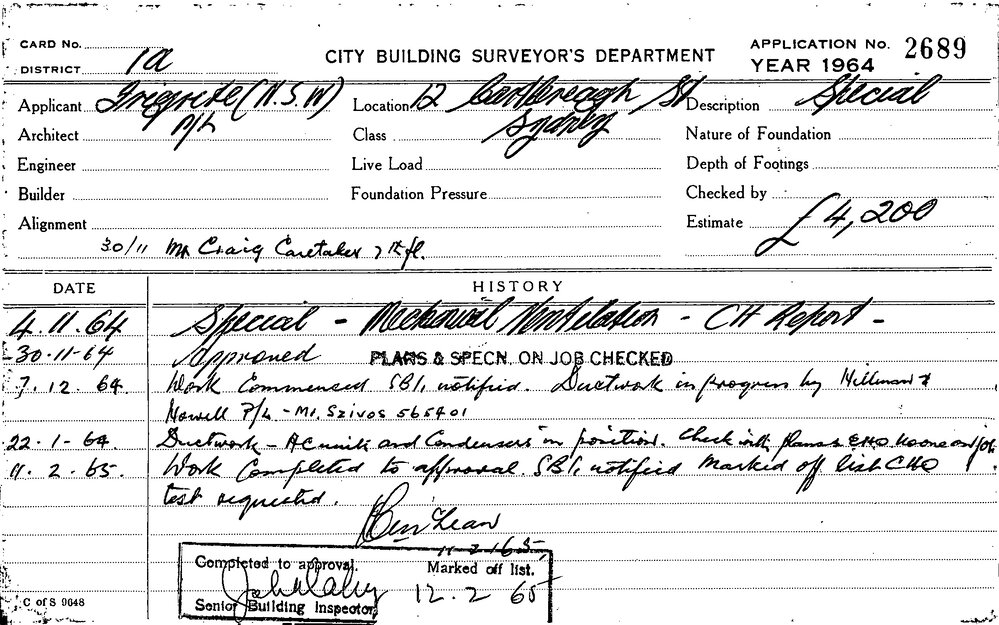 CARD No.
DISTRICT 1a
CITY BUILDING SURVEYOR'S DEPARTMENT
APPLICATION No. 2689
YEAR 1964
Applicant Frigrite (N.S.W) P/L
Location 12 Castlereagh St Sydney
Description Special
Architect
Class
Nature of Foundation
Engineer
Live Load
Depth of Footings
Builder
Foundation Pressure
Checked by
Alignment
Estimate £4,200
30/11 Mr Craig Caretaker 7th fl.
DATE HISTORY
4.11.64 Special - Mechanical Ventilation - CH Report -
30.11.64 Approved PLANS & SPECN. ON JOB CHECKED
7.12.64. Work Commenced SBI, notified. Ductwork in progress by Hillman &
Howell P/L - Mr. Szivos 565401
22.1-64. Ductwork - AC units and Condensers in position. Check with plans & no one on job.
9.2.65. Work Completed to approval. SBI, notified Marked off list CHO
test requested.
11.2.65,
Completed to approval. Marked off list.
12.2 65
Senior Building Inspector
C of S 9648